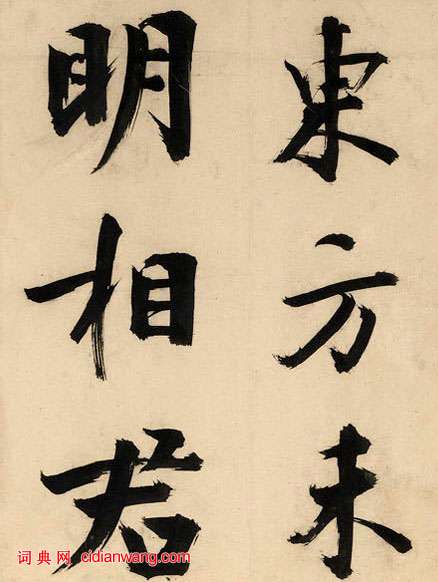 東方未
明相君
词典网 cidianwang.com